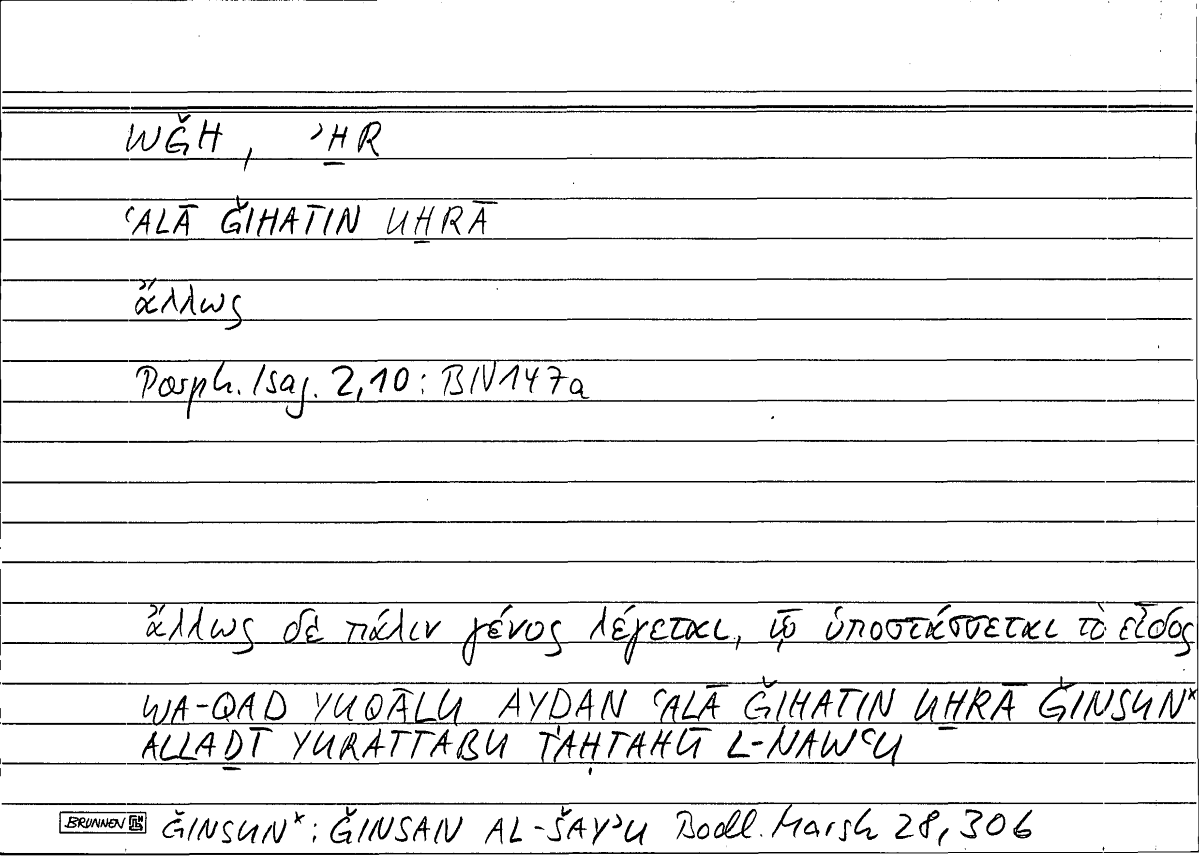 WǦH, ʾH̱R
ʿALĀ ǦIHATIN UH̱RĀ
ἄλλως
Porph. Isag. 2,10: BN 147a
ἄλλως δὲ πάλιν γένος λέγεται, ᾧ ὑποτάσσεται τὸ εἶδος
WA-QAD YUQĀLU AYḌAN ʿALĀ ǦIHATIN UH̱RĀ ǦINSUN*
ALLAḎĪ YURATTABU TAḤTAHŪ L-NAWʿU
BRUNNEN ǦINSUN*: ǦINSAN AL-ŠAYʾU Bodl. Marsh 28, 306